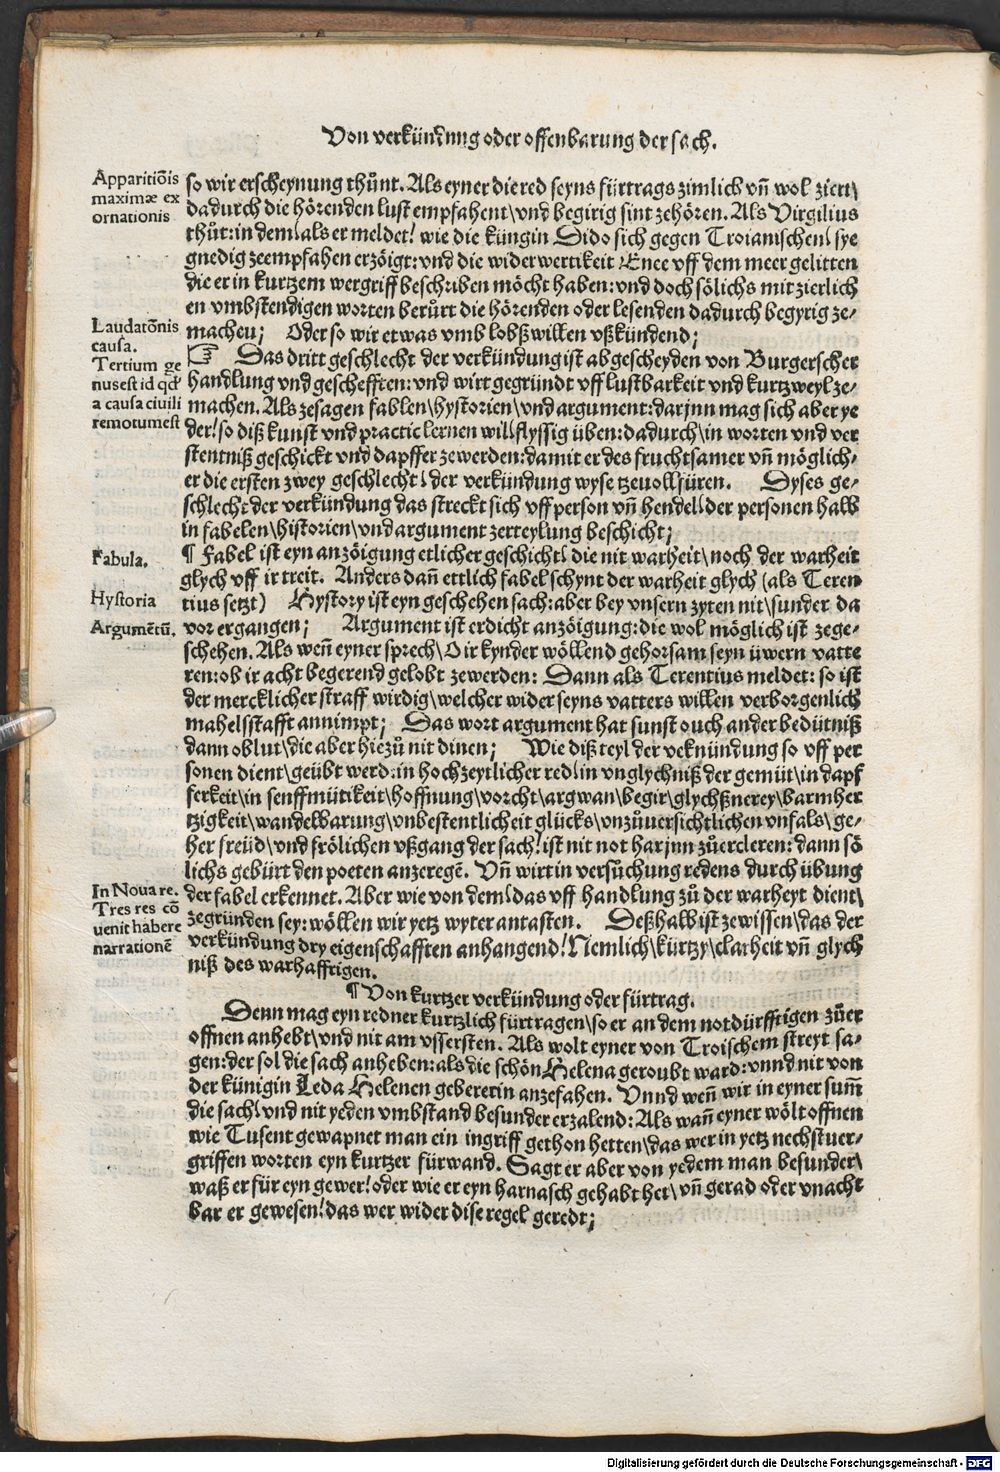 Von verkündnng oder offenbarung der sach.
Apparitiōis
maximæ ex
ornationis
so wir erscheynung thůnt. Als eyner die red seyns fürtrags zimlich vn̄ wol ziert\
dadurch die hörenden lust empfahent\vnd begirig sint zehören. Als Virgilius
thůt: in dem/als er meldet! wie die küngin Dido sich gegen Troianischen/ sye
gnedig zeempfahen erzöigt: vnd die widerwertikeit Enee vff dem meer gelitten
die er in kurtzem wergriff beschriben möcht haben: vnd doch sölichs mit zierlich
en vmbstendigen worten berůrt die hörenden oder lesenden dadurch begyrig ze-
Laudatōnis
causa.
macheu; Oder so wir etwas vmb lobß willen vßkündend;
Tertium ge
nus est id qđ
a causa ciuili
remotum est
☞ Das dritt geschlecht der verkündung ist abgescheyden von Burgerscher
handlung vnd geschefften: vnd wirt gegründt vff lustbarkeit vnd kurtzweyl ze-
machen. Als zesagen fablen\hystorien\vnd argument: darjnn mag sich aber ye
der! so diß kunst vnd practic lernen wil/flyssig üben: dadurch\in worten vnd ver
stentniß geschickt vnd dapffer zewerden: damit er des fruchtsamer vn̄ möglich-
er die ersten zwey geschlecht/ der verkündung wyse tzeuollfüren. Dyses ge-
schlecht der verkündung das streckt sich vff person vn̄ hendel/ der personen halb
in fabelen\historien\vnd argument zerteylung beschicht;
Fabula.
¶ Fabel ist eyn anzöigung etlicher geschicht/ die nit warheit\noch der warheit
glych vff ir treit. Anders dan̄ ettlich fabel schynt der warheit glych (als Teren
Hystoria
tius setzt) Hystory ist eyn geschehen sach: aber bey vnsern zyten nit\sunder da
Argumētū.
vor ergangen; Argument ist erdicht anzöigung: die wol möglich ist zege-
schehen. Als wen̄ eyner sprech\O ir kynder wöllend gehorsam seyn üwern vatte
ren: ob ir acht begerend gelobt zewerden: Dann als Terentius meldet: so ist
der mercklicher straff wirdig\welcher wider seyns vatters willen verborgenlich
mahelsstafft annimpt; Das wort argument hat sunst ouch ander bedütniß
dann oblut\die aber hiezů nit dinen; Wie diß teyl der veknündung so vff per
sonen dient\geübt werd: in hochzeytlicher red/ in vnglychniß der gemüt\in dapf
ferkeit\in senffmütikeit\hoffnung\vorcht\argwan\begir\glychßnerey\barmher
tzigkeit\wandelbarung\vnbestentlicheit glücks\vnzůuersichtlichen vnfals\ge-
her freüd\vnd frölichen vßgang der sach! ist nit not harjnn zůercleren: dann sö
lichs gebürt den poeten anzeregē. Vn̄ wirt in versůchung redens durch übung
In Noua re.
Tres res cō
uenit habere
narrationē
der fabel erkennet. Aber wie von dem/ das vff handlung zů der warheyt dient\
zegründen sey: wöllen wir yetz wyter antasten. Deßhalb ist zewissen\das der
verkündung dry eigenschafften anhangend! Nemlich\kürtzy\clarheit vn̄ glych
niß des warhaffrigen.
¶ Von kurtzer verkündung oder fürtrag.
Denn mag eyn redner kurtzlich fürtragen\so er an dem notdürfftigen zůer
offnen anhebt\vnd nit am vssersten. Als wolt eyner von Troischem streyt sa-
gen: der sol die sach anheben: als die schön Helena geroubt ward: vnnd nit von
der künigin Leda Helenen gebererin anzefahen. Vnnd wen̄ wir in eyner sum̄
die sach/ vnd nit yeden vmbstand besunder erzalend: Als wan̄ eyner wölt offnen
wie Tusent gewapnet man ein ingriff gethon hetten\das wer in yetz nechstuer-
griffen worten eyn kurtzer fürwand. Sagt er aber von yedem man besunder\
waß er für eyn gewer! oder wie er eyn harnasch gehabt het\ vn̄ gerad oder vnacht
bar er gewesen! das wer wider dise regel geredt;
Digitalisierung gefördert durch die Deutsche Forschungsgemeinschaft - DFG